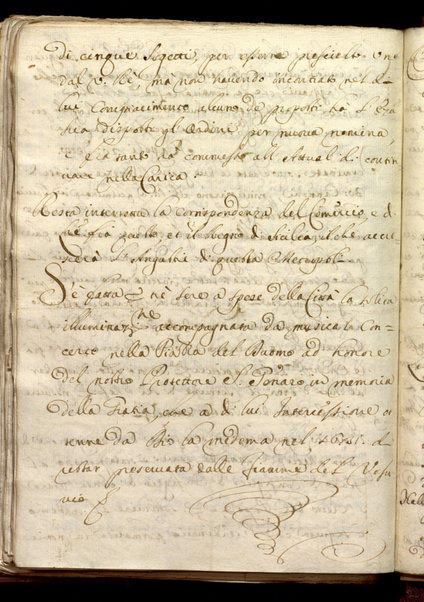 di cinque Sogetti per esserne prescielto uno
dal V. Rè, mà non havendo incontrato nel di
lui Compiacimento alcuno de proposti hà l'E.
Sua disposto gl'Ordini per nuova nomina
è frà tanto hà commesso all'Attual di conti
nuare nella Carica
Resta interrotta la Corrispondenza del Comercio, e di
frà questo et il Regno di Sicilia, il che accre
le Angustie di questa Metropoli
S'è fatta nè sere a spese della Città la solita
illuminaz.ne accompagnata da musicale Con-
certo nella Piazza del Duomo ad honore
del nostro Protettore S. Genaro in memoria
della Grazia, che a di lui Intercessione ot
tenne da Dio la medema nel 1631. di
restar preservata dalle fiamme del Vesu
vio